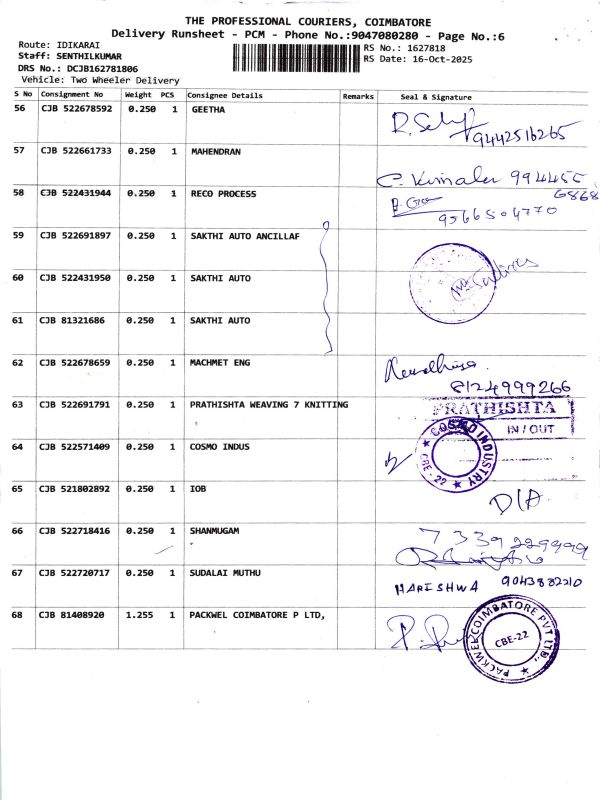 THE PROFESSIONAL COURIERS, COIMBATORE
Delivery Runsheet - PCM - Phone No.:9047080280 - Page No.:6
Route: IDIKARAI
Staff: SENTHILKUMAR
DRS No.: DCJB162781806
Vehicle: Two Wheeler Delivery
RS No.: 1627818
RS Date: 16-Oct-2025
S No Consignment No Weight PCS Consignee Details Remarks Seal & Signature
56 CJB 522678592 0.250 1 GEETHA
9442516265
57 CJB 522661733 0.250 1 MAHENDRAN
994455
6868
58 CJB 522431944 0.250 1 RECO PROCESS
9566504770
59 CJB 522691897 0.250 1 SAKTHI AUTO ANCILLAF
60 CJB 522431950 0.250 1 SAKTHI AUTO
61 CJB 81321686 0.250 1 SAKTHI AUTO
62 CJB 522678659 0.250 1 MACHMET ENG
8124999266
63 CJB 522691791 0.250 1 PRATHISHTA WEAVING 7 KNITTING
PRATHISHTA
IN / OUT
64 CJB 522571409 0.250 1 COSMO INDUS
COSMO INDUSTRY
CBE - 22
65 CJB 521802892 0.250 1 IOB
D/A
66 CJB 522718416 0.250 1 SHANMUGAM
7339229999
67 CJB 522720717 0.250 1 SUDALAI MUTHU
HARISHWA 9043882210
68 CJB 81408920 1.255 1 PACKWEL COIMBATORE P LTD,
PACKWEL COIMBATORE PVT LTD.,
CBE-22